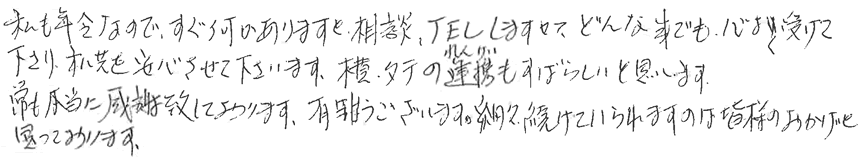 私も年令なので、すぐ何かありますと、相談、TELしますので、どんな事でも、心よく受けて
下さり、私共を安心させて下さいます、横、タテの連携もすばらしいと思います。
常も本当に感謝致しております、有難うございます。細々続けていられますのは皆様のおかげと
思っております、